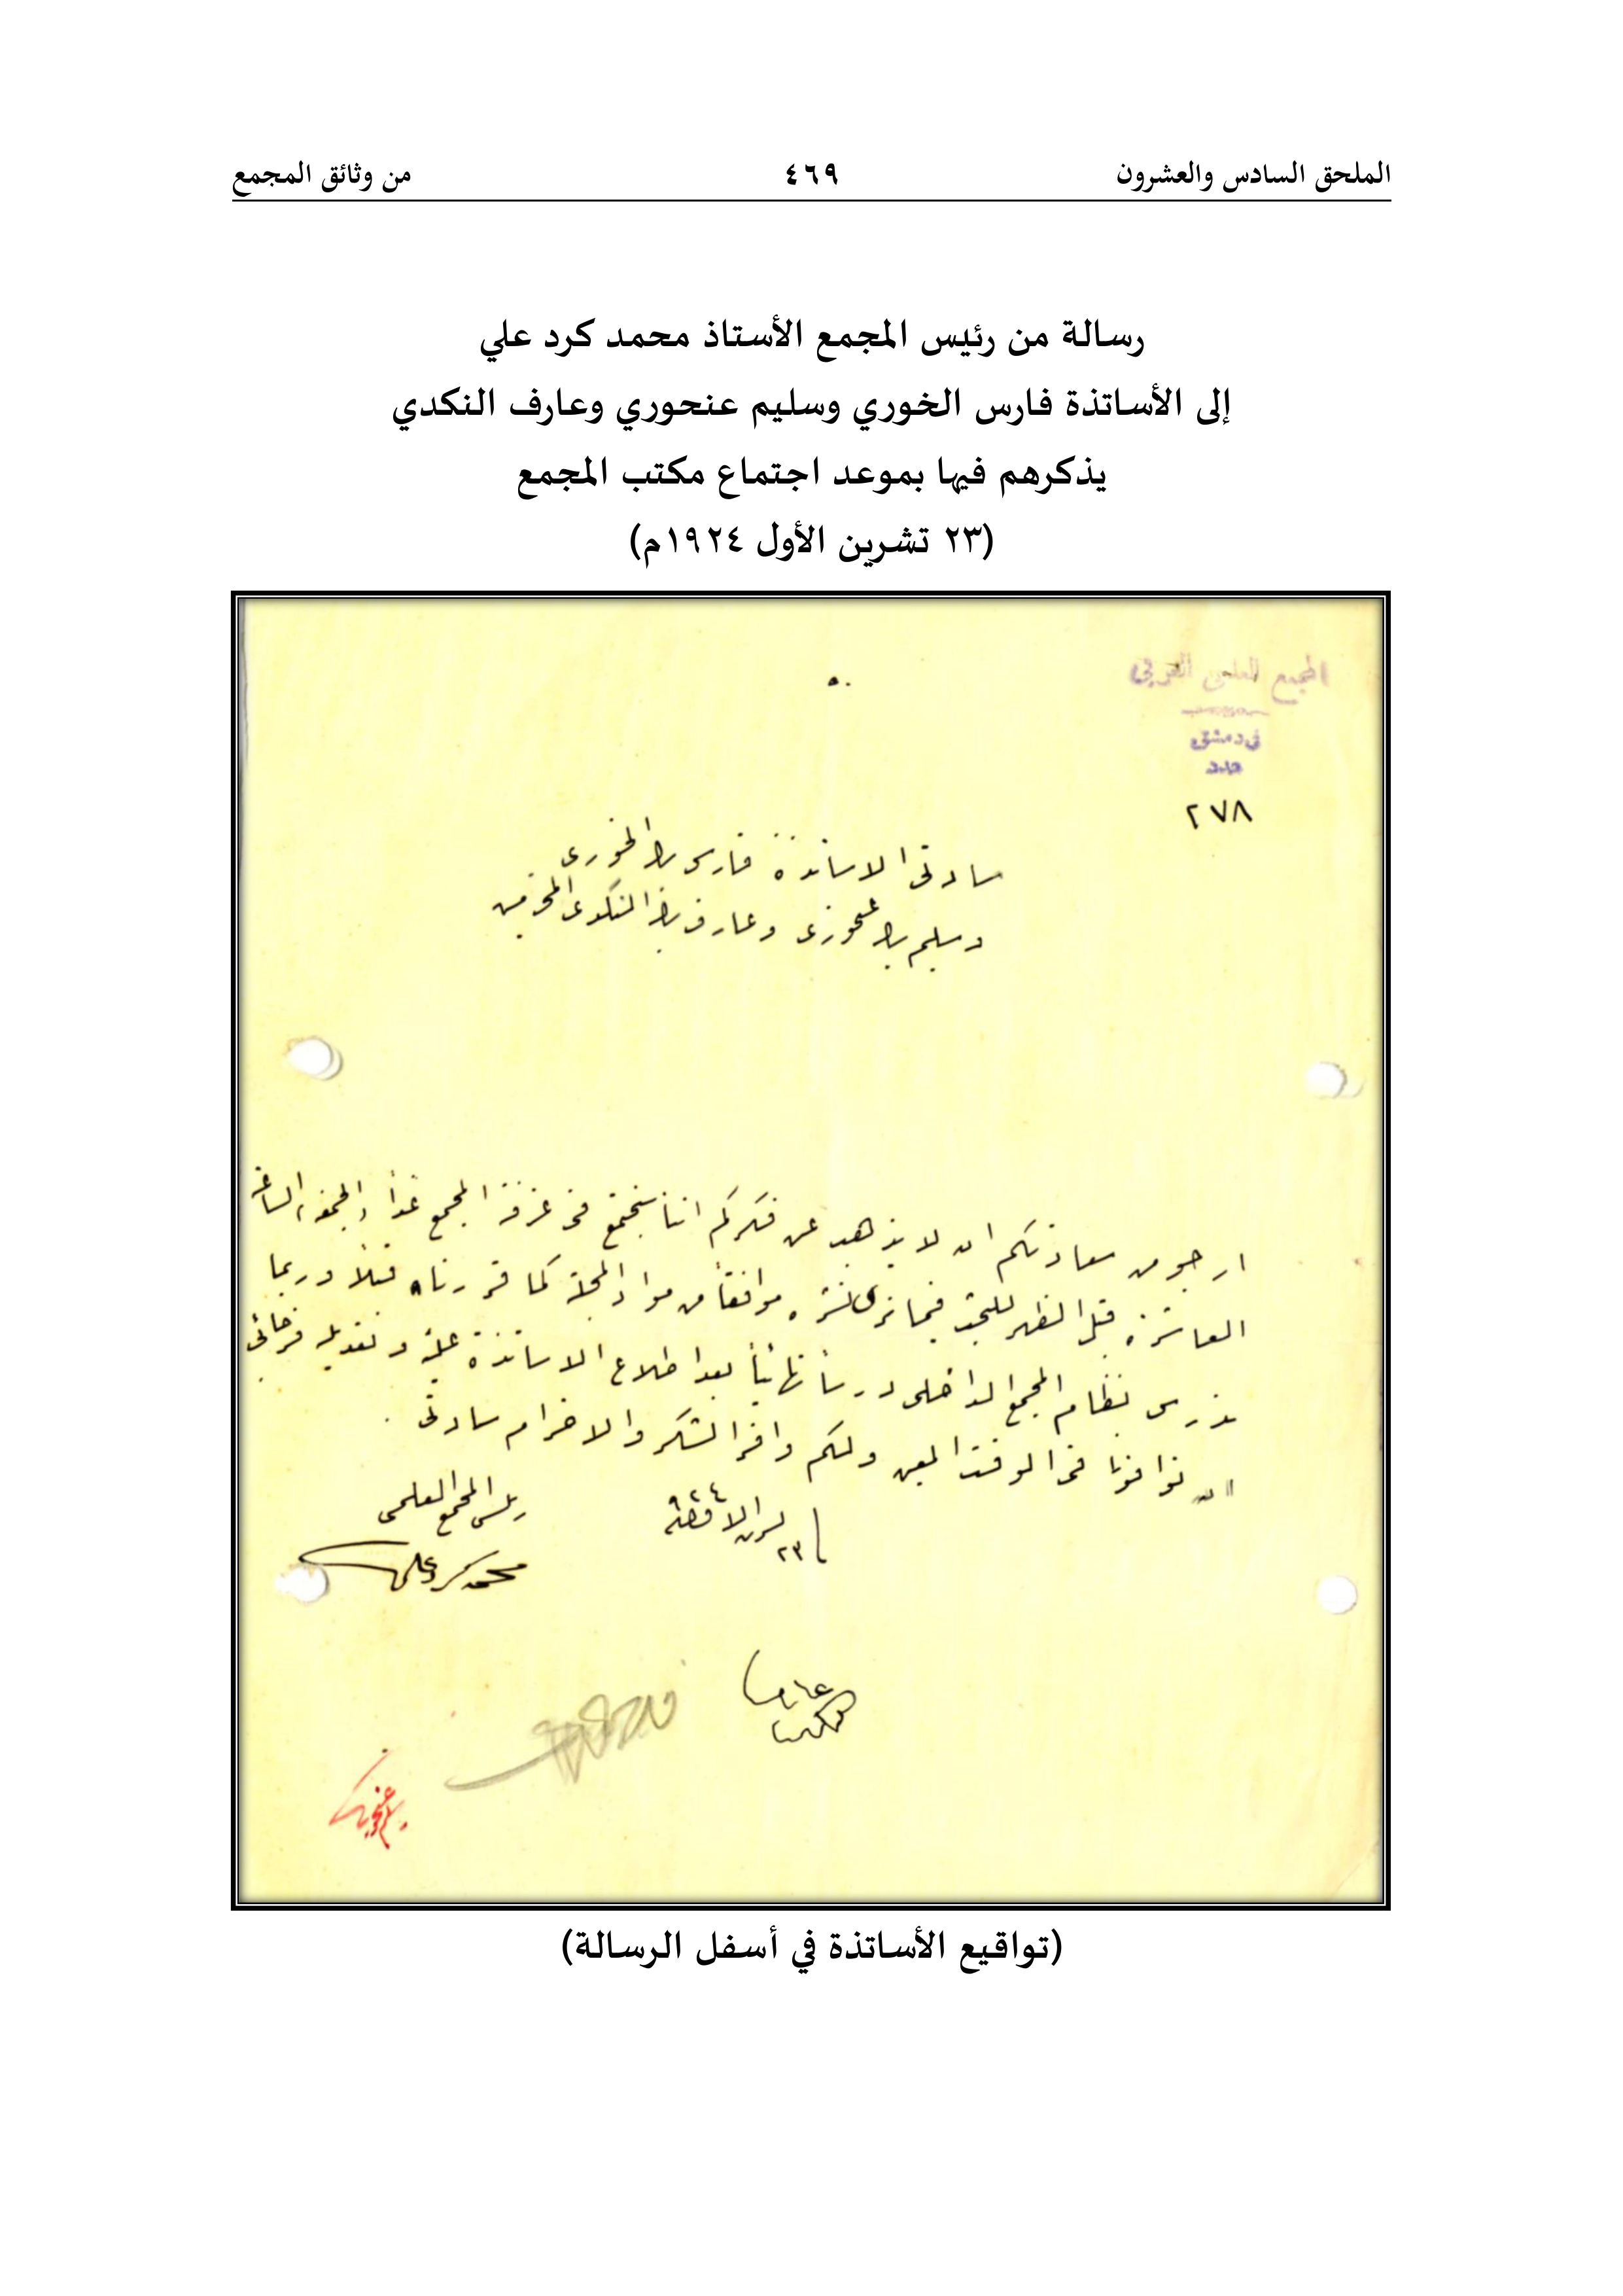 الملحق السادس والعشرون ٤٦٩ من وثائق المجمع
رسالة من رئيس المجمع الأستاذ محمد كرد علي
إلى الأساتذة فارس الخوري وسليم عنحوري وعارف النكدي
يذكرهم فيها بموعد اجتماع مكتب المجمع
(٢٣ تشرين الأول ١٩٢٤م)
المجمع العلمي العربي
في دمشق
عدد
٢٧٨
سادتي الاساتذة فارس بك الخوري
وسليم بك عنحوري وعارف بك النكدي المحترمين
ارجو من سعادتكم ان لا يذهب عن فكركم اننا سنجتمع في غرفة المجمع غداً الجمعة الساعة
العاشرة قبل الظهر للبحث فيما نرى نشره موافقاً من مواد المجلة كما قررناه قبلاً وربما
ندرس نظام المجمع الداخلي درساً نهائياً بعد اطلاع الاساتذة عليه وتعديله فرجائي
ان توافونا في الوقت المعين ولكم وافر الشكر والاحترام سادتي .
٢٣ تشرين الاول سنة ٩٢٤
رئيس المجمع العلمي
محمد كرد علي
عارف النكدي
سليم عنحوري
(تواقيع الأساتذة في أسفل الرسالة)